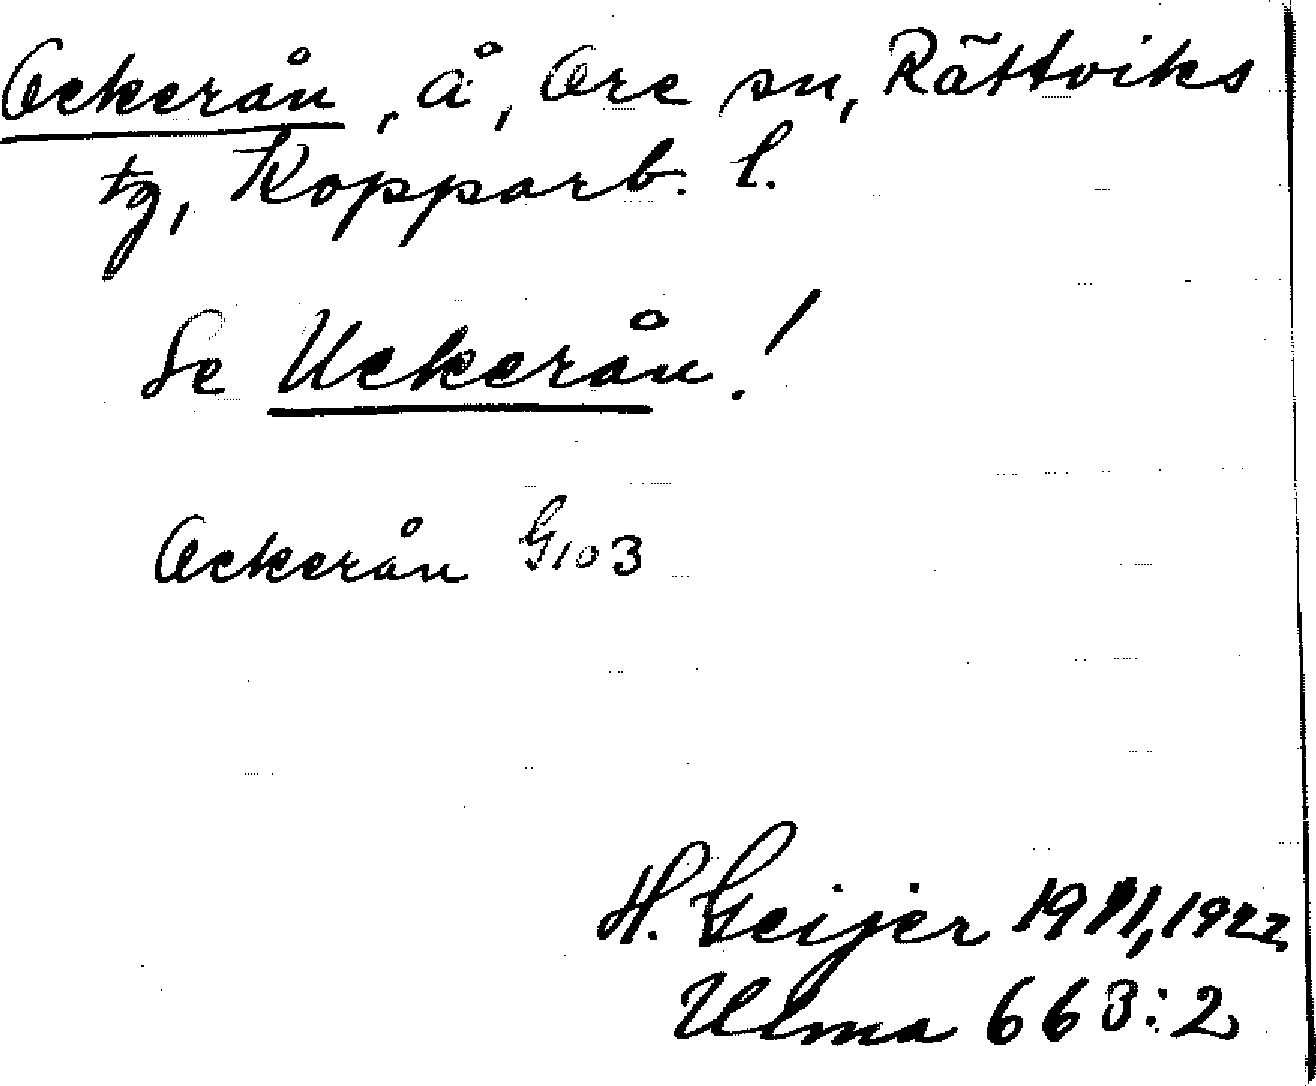 Ockerån, å, Ore sn, Rättviks
tg, Kopparb. l.
Se Uckerån!
Ockerån G103
H. Geijer 1911, 1922
Ulma 663:2